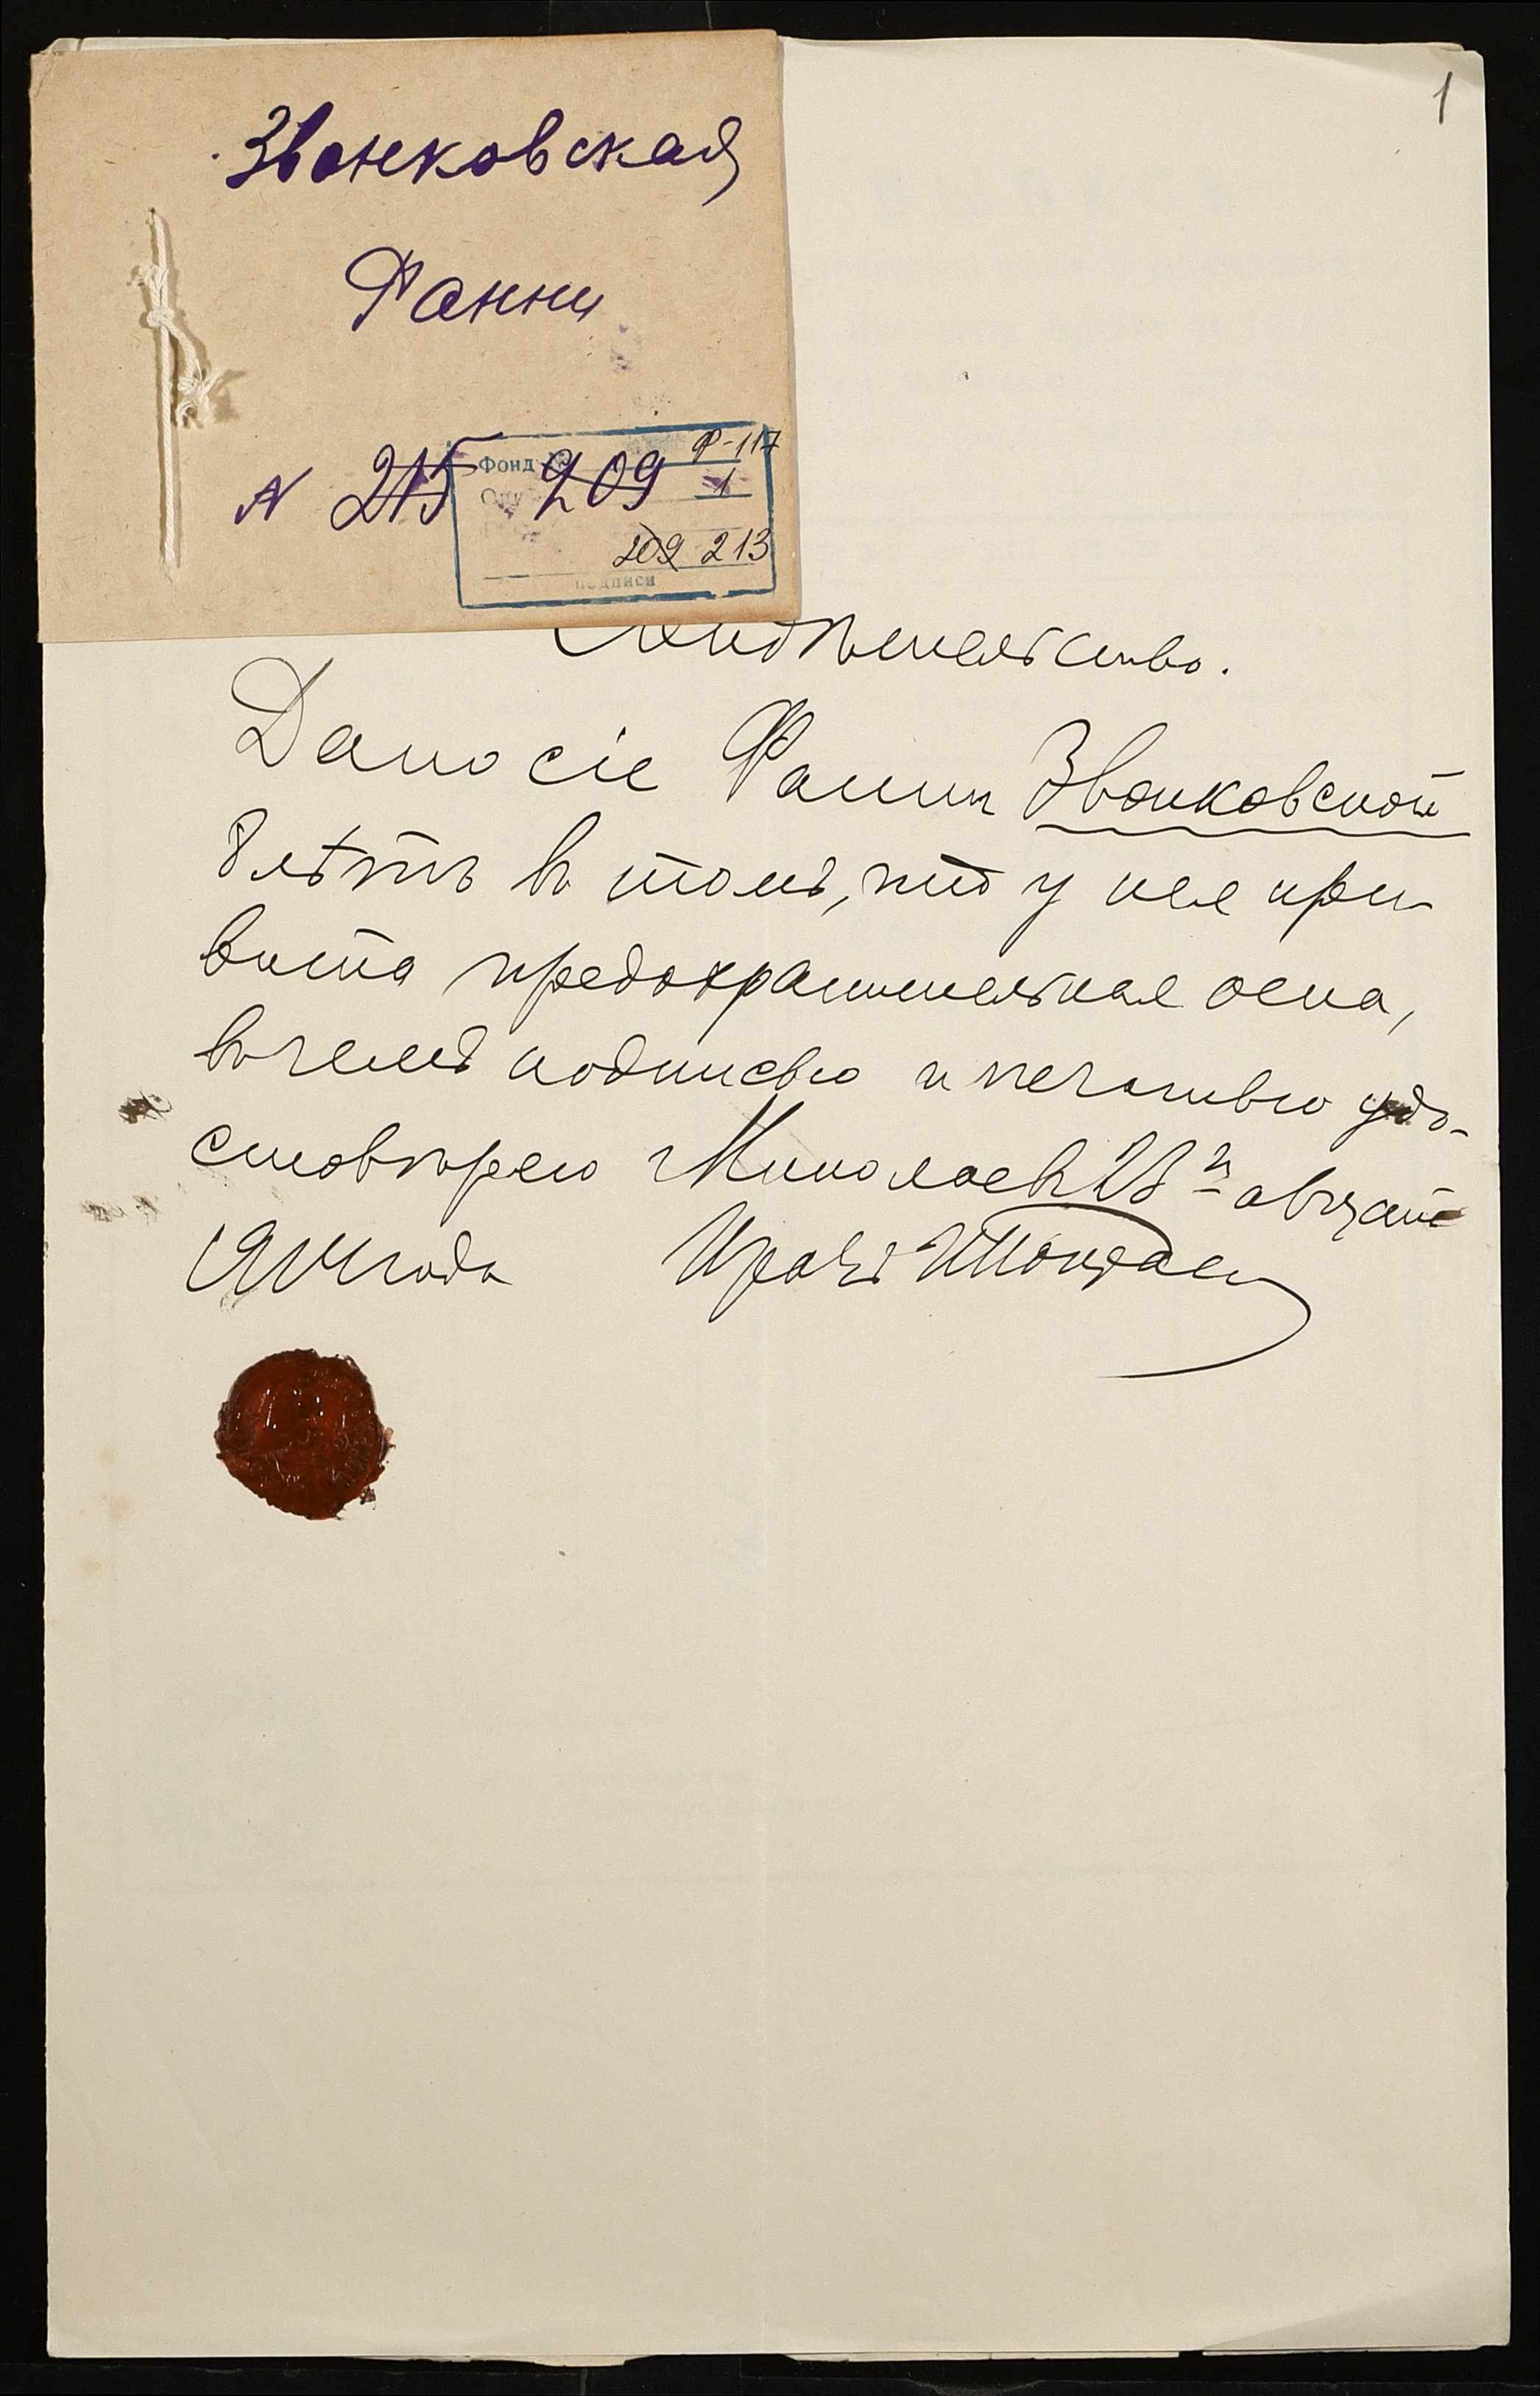 1
Звонковская
Фанни
N 215 209 Ф-117
Фонд №
1
209 213
подписи
Свидѣтельство.
Дано сіе Фанни Звонковской
8 лѣтъ въ томъ, что у нея при
вита предохранительная оспа,
въ чемъ подписью и печатью удо-
стовѣряю Николаевъ 28го августа
года Врачъ